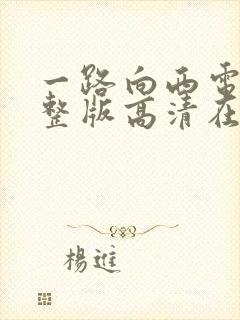 一路向西电
整版高清在
杨进